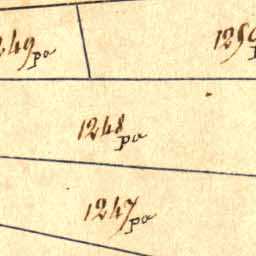 249 pa
125
1248 pa
1247 pa